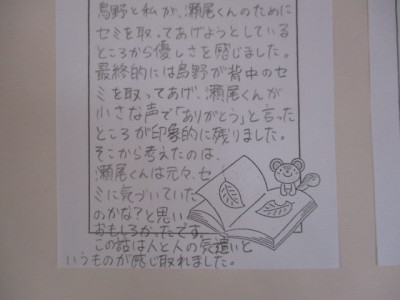 鳥野と私が、瀬尾くんのために
セミを取ってあげようとしている
ところから優しさを感じました。
最終的には鳥野が背中のセ
ミを取ってあげ、瀬尾くんが
小さな声で「ありがとう」と言った
ところが印象的に残りました。
そこから考えたのは、
瀬尾くんは元々、セ
ミに気づいていた
のかな?と思い
おもしろかったです。
この話は人と人の気遣いと
いうものが感じ取れました。